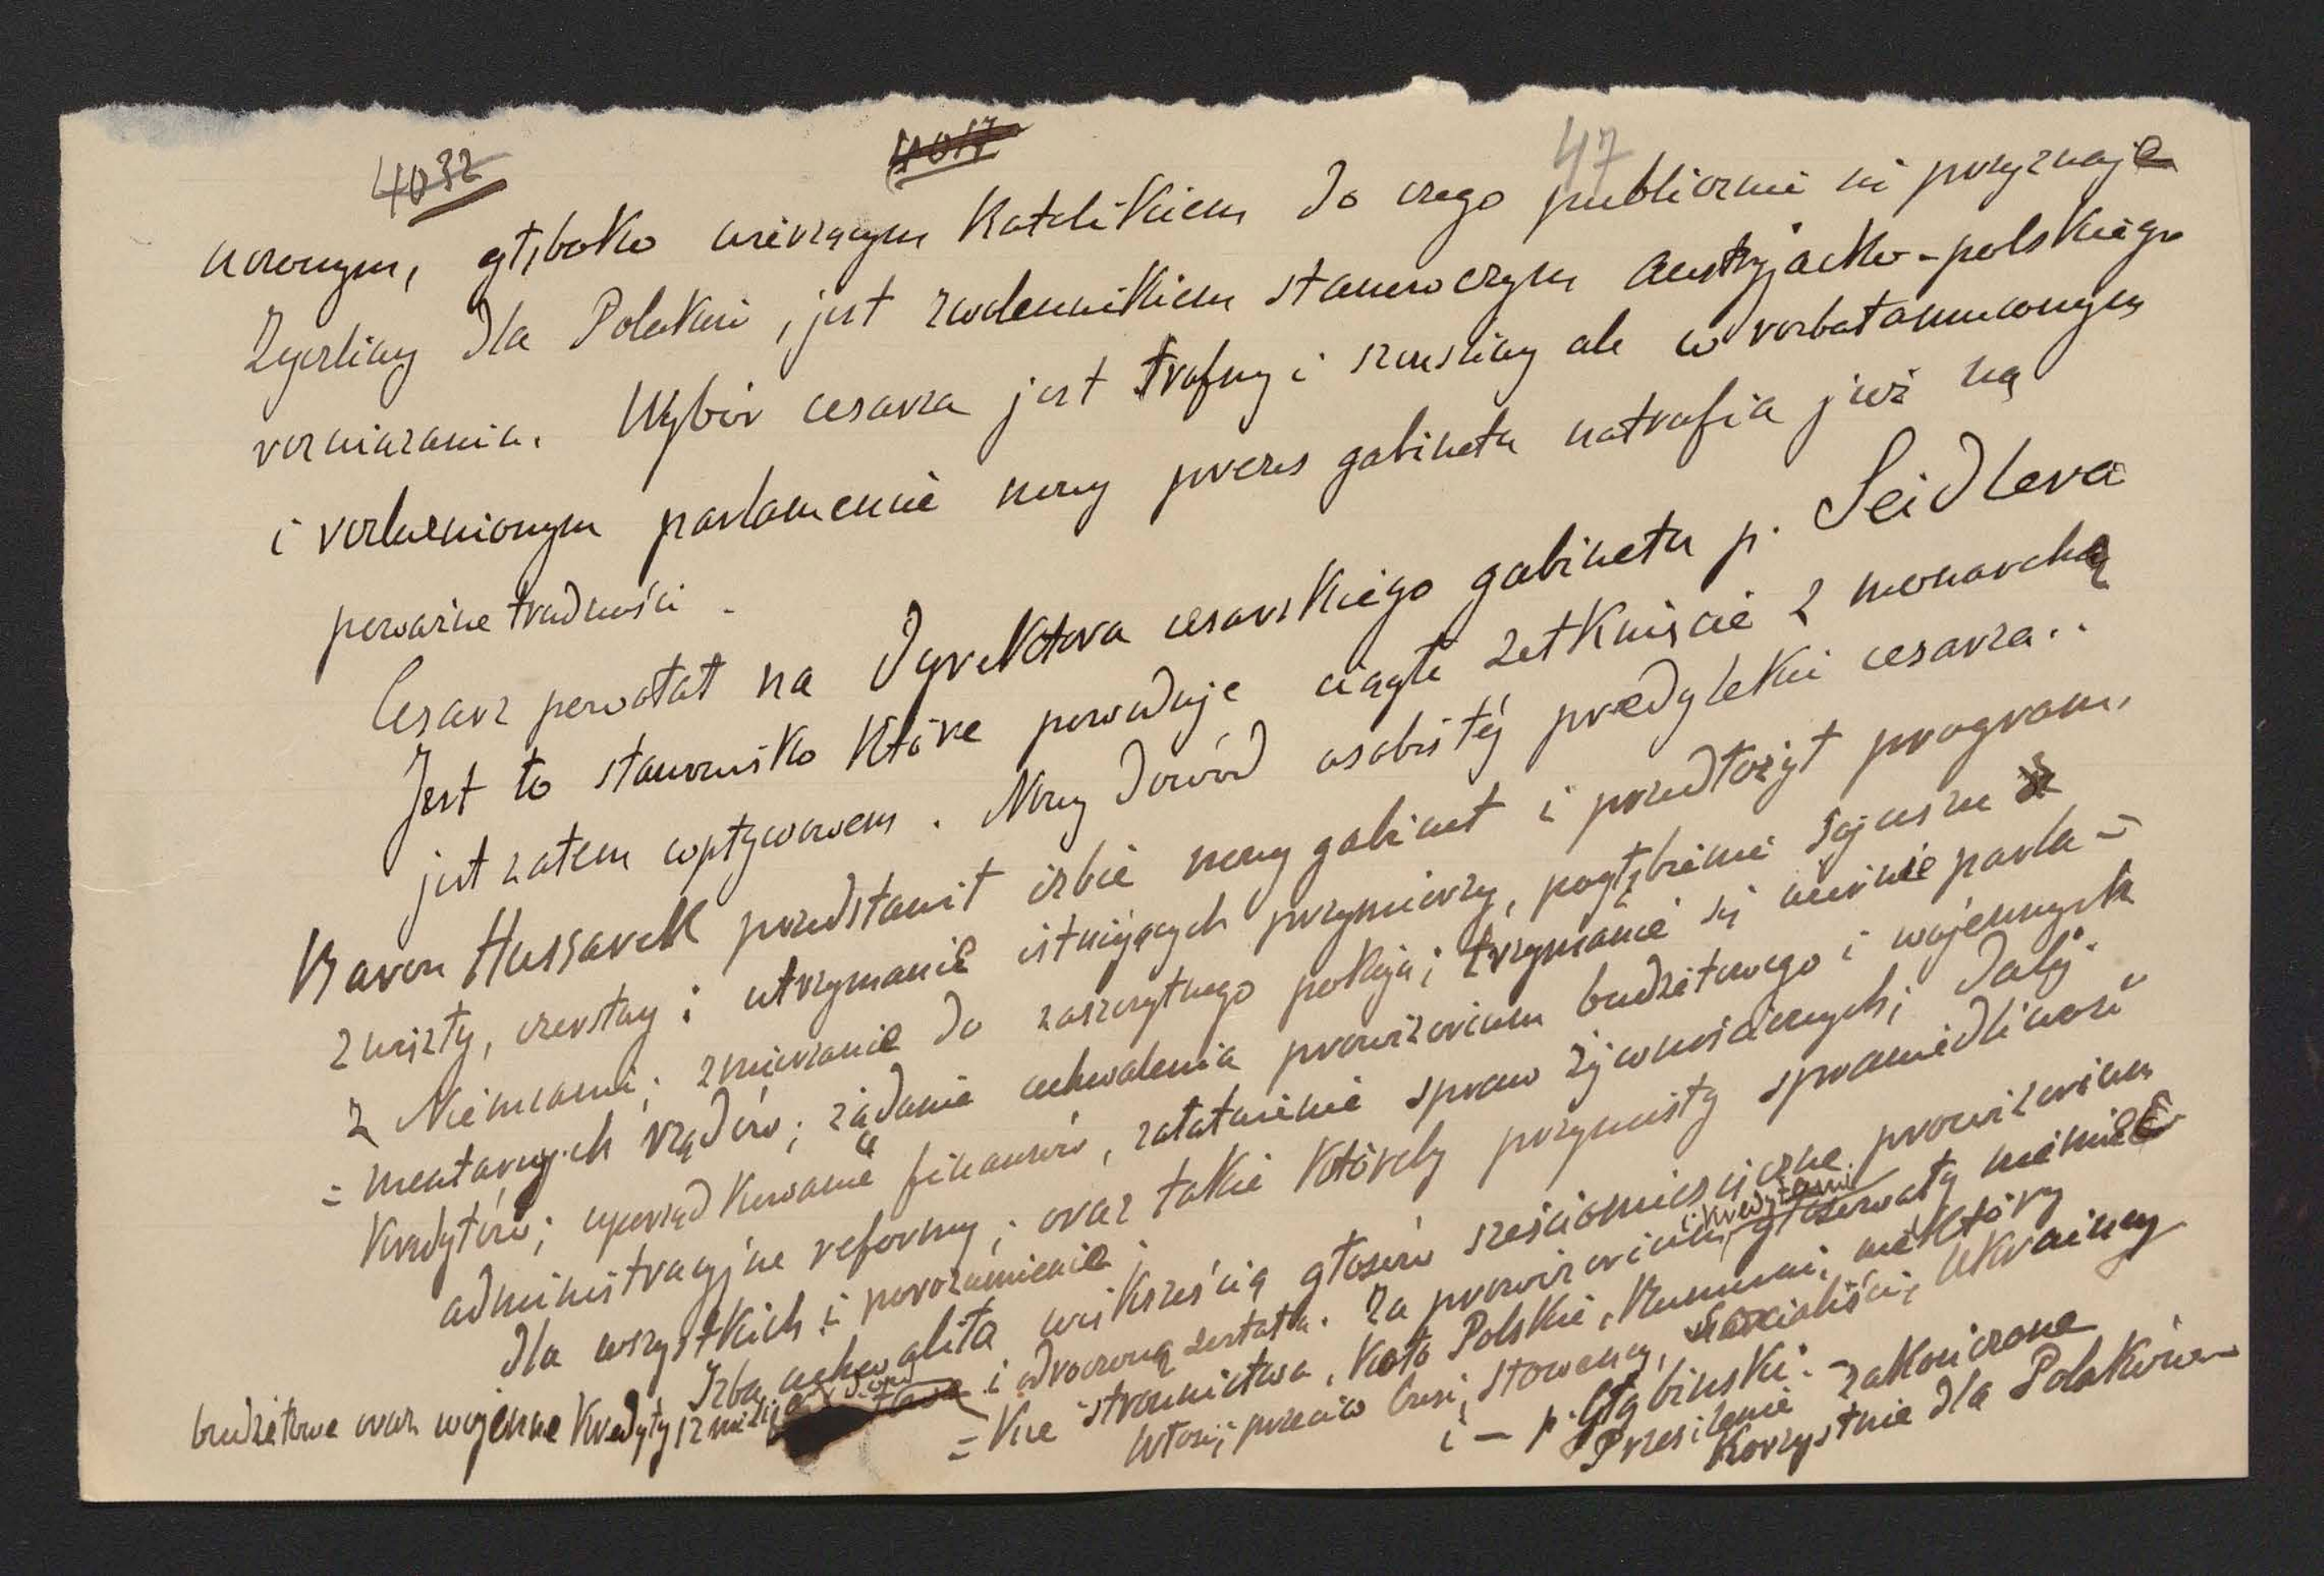 4032
4017
47
nowym, głęboko wierzącym Katolikiem do czego publicznie się przyznaje
Życzliwy dla Polaków, jest zwolennikiem stanowczym austryjacko-polskiego
rozwiązania. Wybór cesarza jest trafny i szczęśliwy ale w
i parlamencie nowy prezes gabinetu natrafia już na
poważne trudności.
Cesarz powołał na Dyrektora cesarskiego gabinetu p. Seidlera
Jest to stanowisko które powoduje ciągłe zetknięcie z monarchą
jest zatem wpływowem. Nowy dowód osobistéj predylekcii cesarza..
Baron Hussarek przedstawił izbie nowy gabinet i przedłożył program,
zwięzły, czerstwy: utrzymanie istniejących przymierzy, pogłębienie sojuszu
z Niemcami; zmierzanie do zaszczytnego pokoju; trzymanie się ściśle parla=
=mentarnych rządów; żądanie uchwalenia prowizorium budżetowego i wojennych
Kredytów; uporządkowanie finansów, załatwienie spraw żywnościowych; daléj
administracyjne reformy; oraz takie któreby przyniosły sprawiedliwość
dla wszystkich i porozumienie;
Izba uchwaliła większością głosów sześciomiesięczne prowizorium
budżetowe oraz wojenne Kredyty i odroczoną została. Za prowizorium i Kredytami głosowały niemiec=
=Kie stronnictwa, Koło Polskie, Rumuni, niektórzy
Włosi; przeciw Czesi, Słoweńcy, Socialiści, Ukraińcy
i – p. Głąbiński. –
Przesilenie zakończone
Korzystnie dla Polaków –